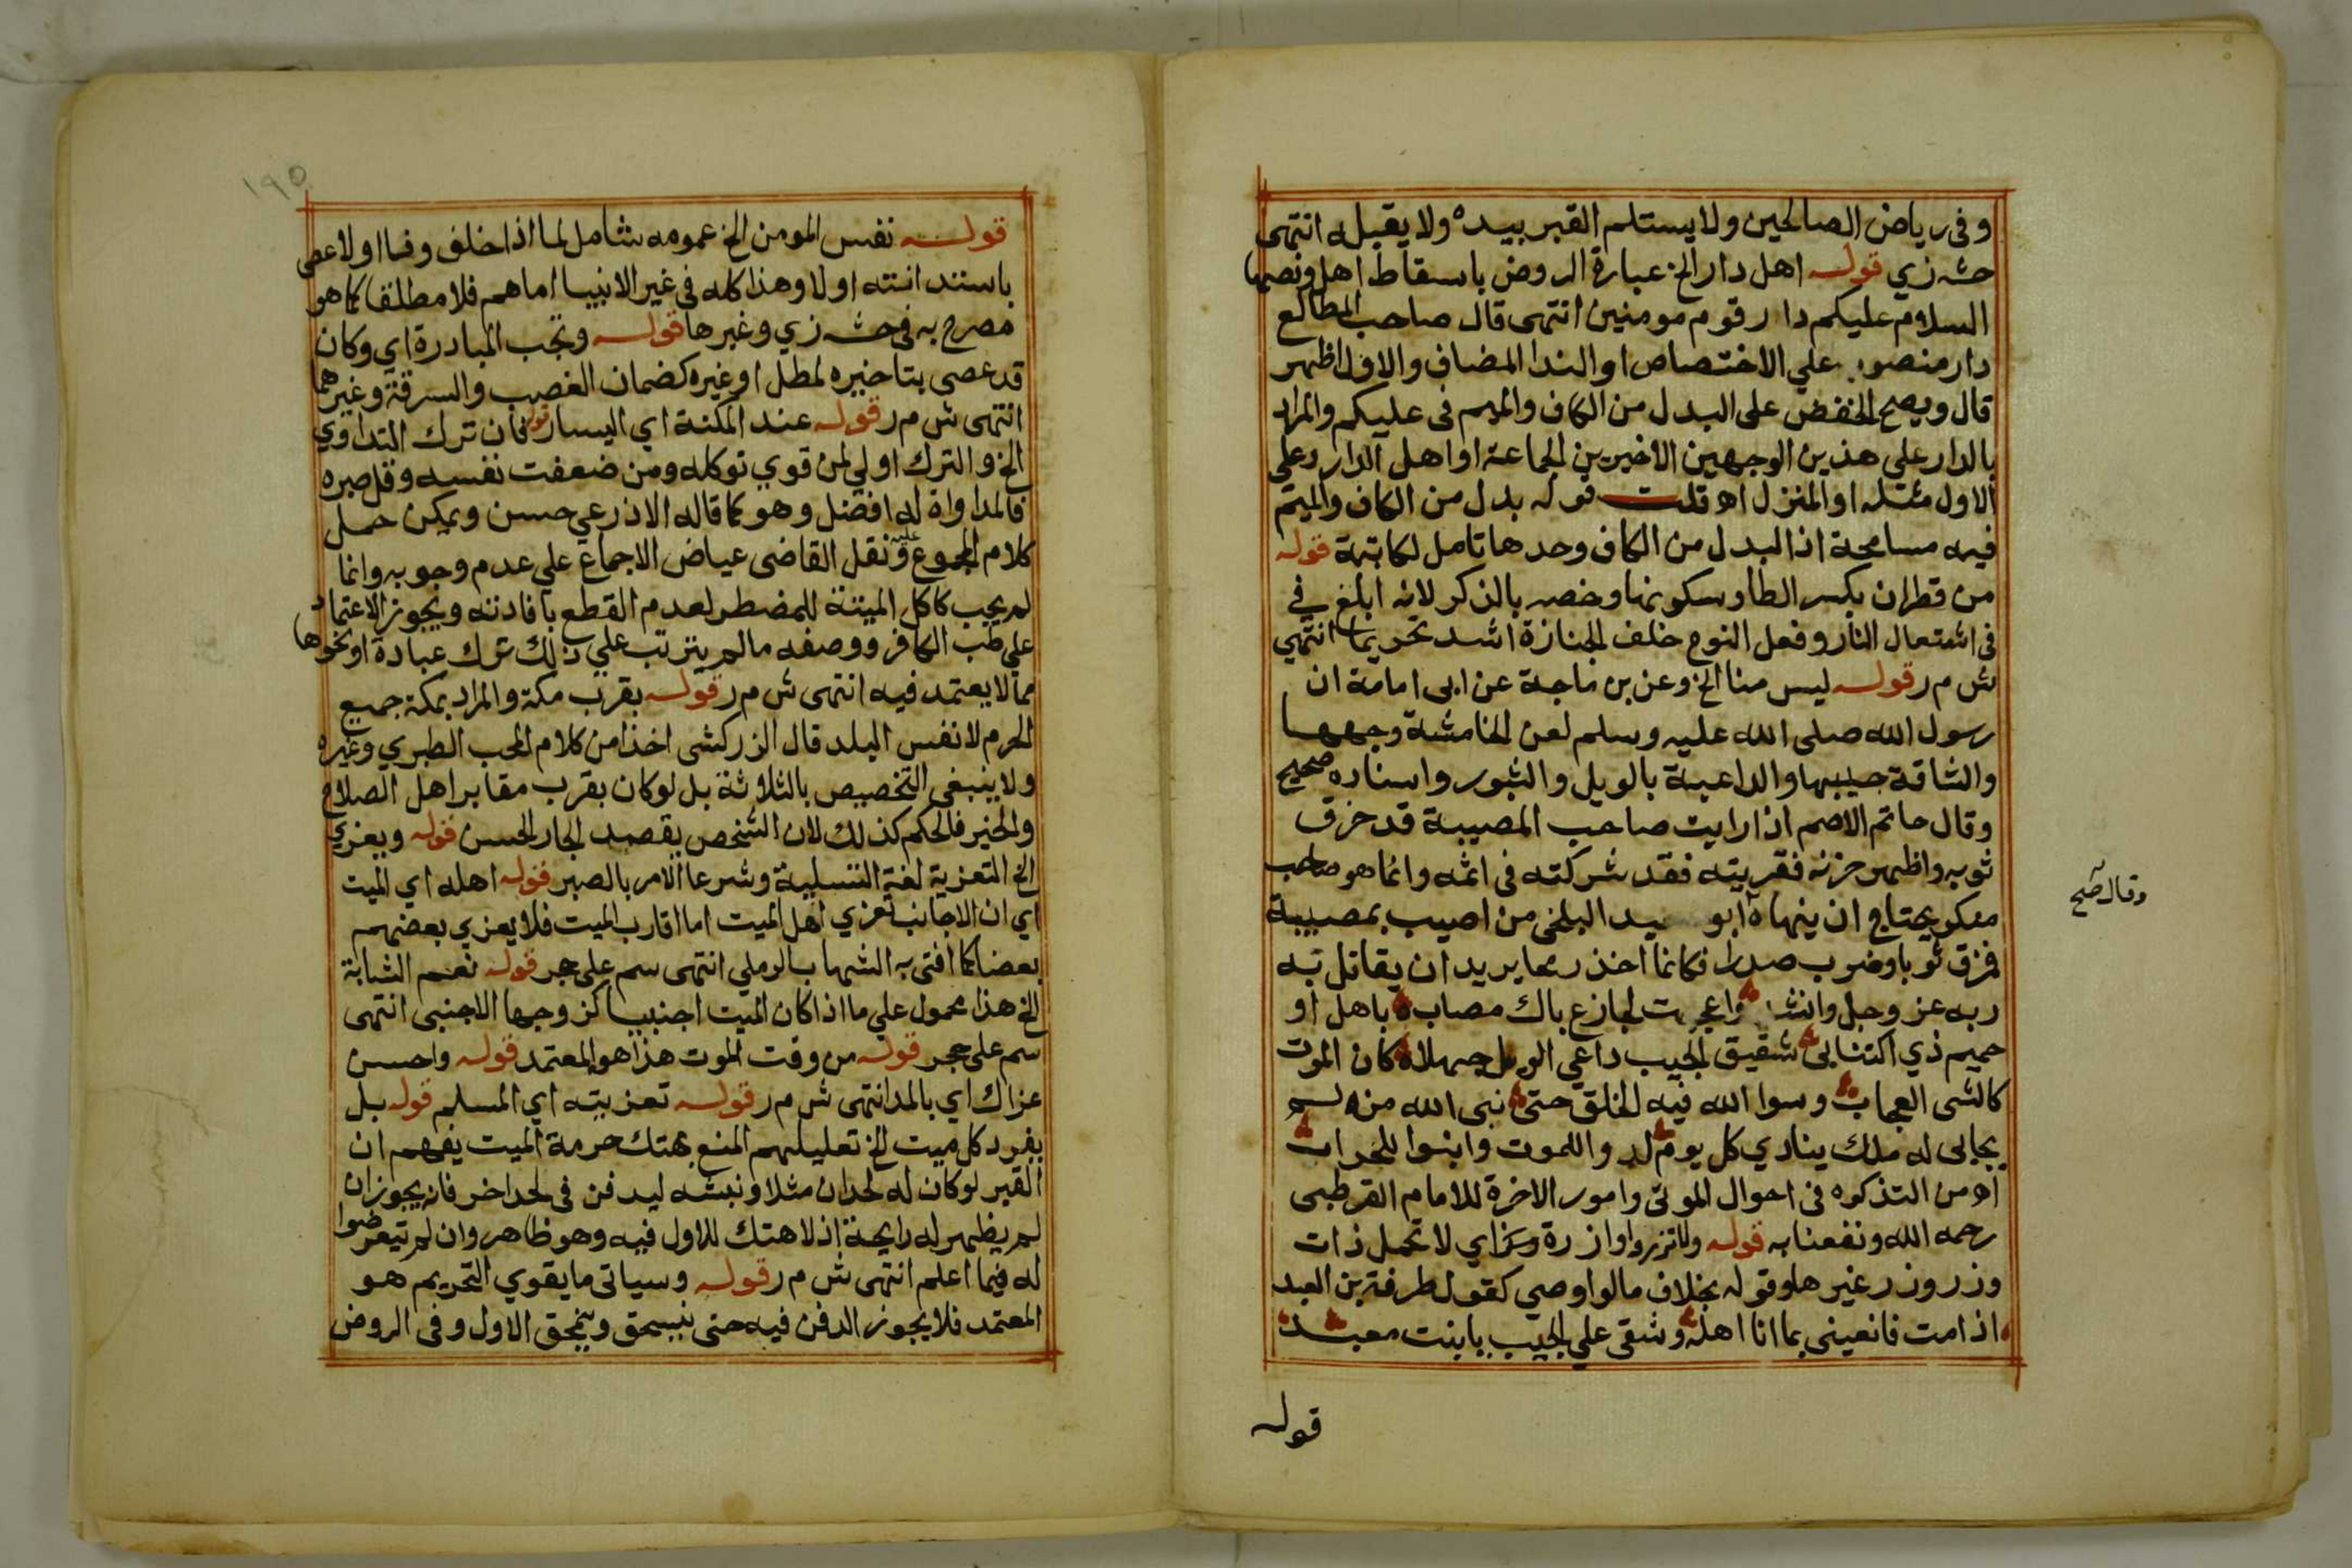 وفى رياض الصالحين ولا يستلم القبر بيده ولا يقبله انتهى
حشـ زي قولـه اهل دار الخ عبارة الروض باسقاط اهل ونصها
السلام عليكم دار قوم مومنين انتهى قال صاحب المطالع
دار منصوب علي الاختصاص او الندا المضاف والاول اظهر
قال ويصح الخفض على البدل من الكاف والميم فى عليكم والمراد
بالدار علي هذين الوجهين الاخيرين الجماعة او اهل الدار وعلي
الاول مثله او المنزل اهـ قلت قوله بدل من الكاف والميم
فيه مسامحة اذ البدل من الكاف وحدها تامل لكاتبة قوله
من قطران بكسر الطا وسكونها وخصه بالذكر لانه ابلغ في
فى اشتعال النار وفعل النوح خلف الجنازة اشد تحريما انتهي
ش م ر قولـه ليس منا الخ وعن بن ماجة عن ابى امامة ان
رسول الله صلى الله عليه وسلم لعن الخامشة وجهها
والشاقة جيبها والداعية بالويل والثبور واسناده صحيح
وقال حاتم الاصم اذا رايت صاحب المصيبة قد خرق
ثوبه واظهر حزنه فعزيته فقد شركته فى اثمه وانما هو صاحب
منكر يحتاج ان ينهاه ابو سعيد البلخى من اصيب بمصيبة
وقال صح
فمزق ثوبا وضرب صدرا فكانما اخذ رمحا يريد ان يقاتل به
ربه عز وجل وانشد واعجبت لجازع باك مصاب باهل او
حميم ذي اكتئاب شقيق الجيب داعي الويل جهلا كان الموت
كالشى العجاب وسوا الله فيه الخلق حتى نبى الله منه لم
يحابى له ملك ينادي كل يوم لدوا للموت وابنوا للخراب
اهـ من التذكره فى احوال الموتى وامور الاخرة للامام القرطبى
رحمه الله ونفعنا به قوله ولا تزر وازرة وزر اي لا تحمل ذات
وزر وزر غيرها وقوله بخلاف ما لو اوصي كقول طرفة بن العبد
اذا مت فانعينى بما انا اهله وشقى علي الجيب يا بنت معبد
قوله
١٩٥
قولـه نفس المومن الخ عمومه شامل لما اذا خلف وفا او لا عصى
باستدانته او لا وهذا كله فى غير الانبيا اما هم فلا مطلقا كما هو
مصرح به فى حشـ زي وغيرها قولـه وتجب المبادرة اي وكان
قد عصى بتاخيره لمطل او غيره كضمان الغصب والسرقة وغيرهما
انتهى ش م ر قوله عند المكنة اي اليسار قوله فان ترك التداوي
الخ والترك اولي لمن قوي توكله ومن ضعفت نفسه وقل صبره
فالمداواة له افضل وهو كما قاله الاذرعي حسن ويمكن حمل
كلام المجموع عليه ونقل القاضى عياض الاجماع علي عدم وجوبه وانما
لم يجب كاكل الميتة للمضطر لعدم القطع بافادته ويجوز الاعتماد
علي طب الكافر ووصفه ما لم يترتب علي ذلك ترك عبادة او نحوها
مما لا يعتمد فيه انتهى ش م ر قولـه بقرب مكة والمراد بمكة جميع
الحرم لا نفس البلد قال الزركشى اخذا من كلام المحب الطبري وغيره
ولا ينبغى التخصيص بالثلاثة بل لو كان بقرب مقابر اهل الصلاح
والخير فالحكم كذلك لان الشخص يقصد الجار الحسن قوله ويعزي
الخ التعزية لغة التسلية وشرعا الامر بالصبر قوله اهله اي الميت
اي ان الاجانب تعزي اهل الميت اما اقارب الميت فلا يعزي بعضهم
بعضا كما افتى به الشهاب الرملي انتهى سم على حجر قوله نعم الشابة
الخ هذا محمول علي ما اذا كان الميت اجنبيا كزوجها الاجنبى انتهى
سم على حجر قوله من وقت الموت هذا هو المعتمد قوله واحسن
عزاك اي بالمد انتهى ش م ر قولـه تعزيته اي المسلم قوله بل
يفرد كل ميت الخ تعليلهم المنع بهتك حرمة الميت يفهم ان
القبر لو كان له لحدان مثلا ونبشه ليدفن فى لحد اخر فانه يجوز ان
لم يظهر له رايحة اذ لا هتك للاول فيه وهو ظاهر وان لم يتعرضوا
له فيما اعلم انتهى ش م ر قولـه وسياتى ما يقوي التحريم هو
المعتمد فلا يجوز الدفن فيه حتى ينسحق وينمحق الاول وفى الروض